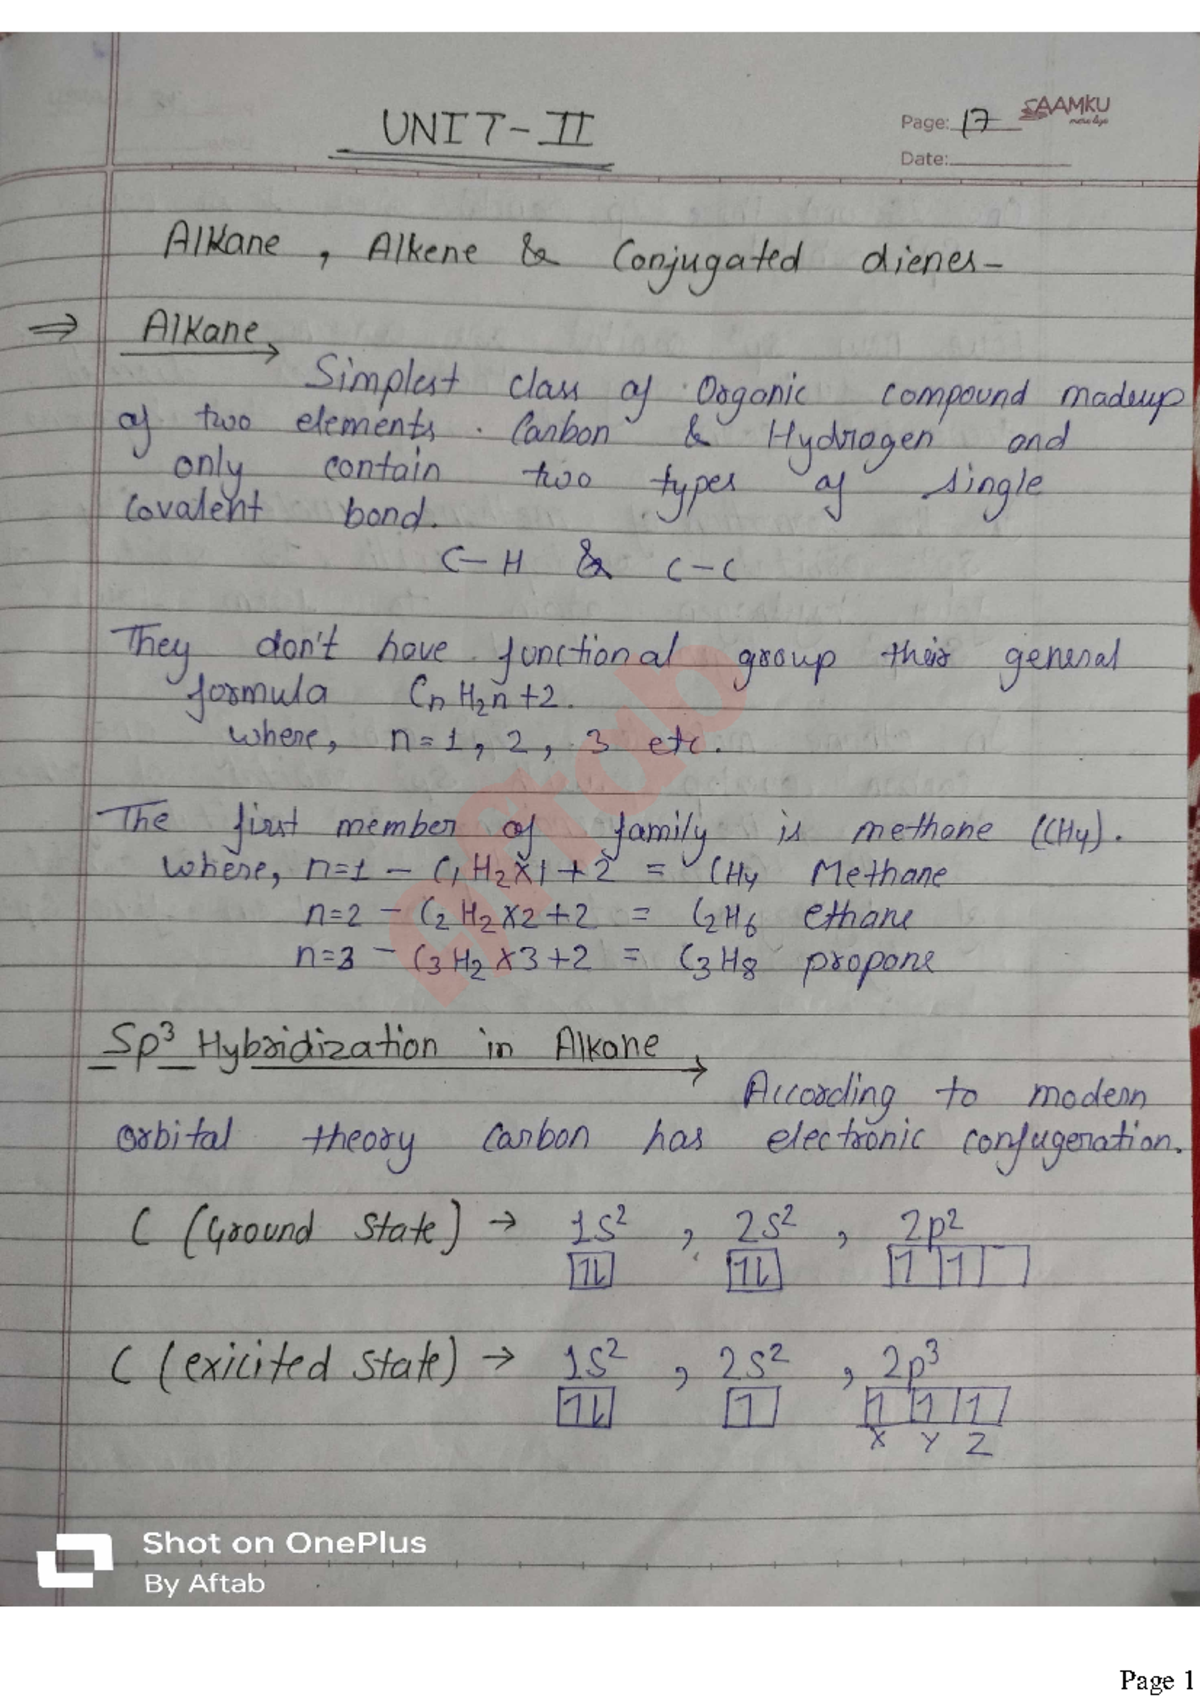 UNIT-II
Page: 17 SAAMKU
Date:
Alkane, Alkene & Conjugated dienes-
⇒ Alkane
Simplest class of Organic compound madeup
of two elements. Carbon & Hydrogen and
only contain two types of single
covalent bond.
C-H & C-C
They don't have functional group their general
formula CnH2n+2.
where, n=1, 2, 3 etc.
The first member of family is methane (CH4).
where, n=1 - C1H2x1+2 = CH4 Methane
n=2 - C2H2x2+2 = C2H6 ethane
n=3 - C3H2x3+2 = C3H8 propane
Sp³ Hybridization in Alkane →
According to modern
orbital theory carbon has electronic confugeration.
C (Ground State) → 1s², 2s², 2p²
1L 1L 1 1
C (exicited state) → 1s², 2s², 2p³
1L 1 1 1 1
X Y Z
Aftab
Shot on OnePlus
By Aftab
Page 1